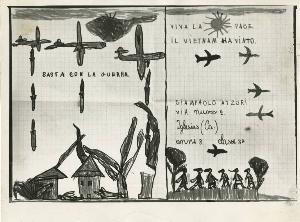 BASTA CON LA GUERRA.
VIVA LA PACE
IL VIETNAM HA VINTO.
GIAMPAOLO AZZURI
VIA nuova 2
Iglesias (Ca.)
anni 8 classe 3ª